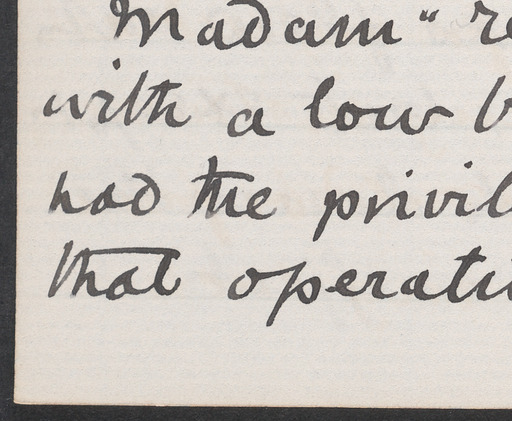 Madam" re
with a low b
had the privil
that operati